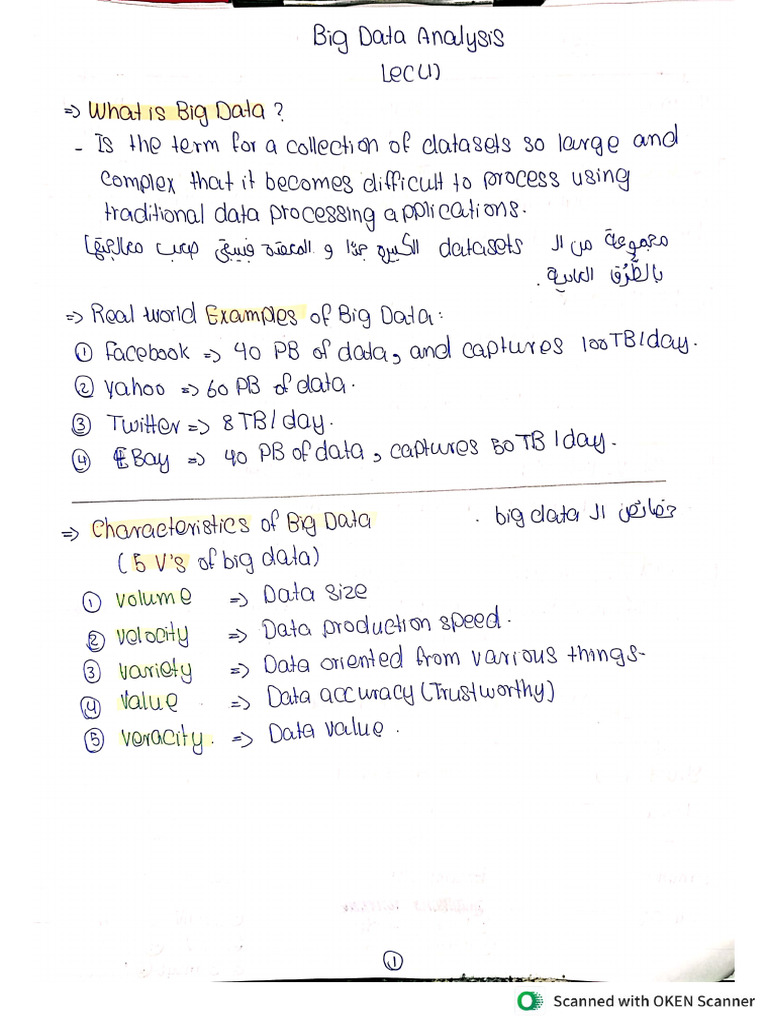 Big Data Analysis
Lec(1)
=> What is Big Data ?
- Is the term for a collection of datasets so large and
complex that it becomes difficult to process using
traditional data processing applications.
مجموعة من ال datasets الكبيرة جدًا و المعقدة فبيبقى صعب معالجتها
بالطُرُق العادية .
=> Real world Examples of Big Data:
① Facebook => 40 PB of data, and captures 100TB/day.
② yahoo => 60 PB of data.
③ Twitter => 8 TB/day.
④ EBay => 40 PB of data, captures 50 TB/day.
=> Characteristics of Big Data
خصائص ال big data .
(5 V's of big data)
① volume => Data size
② velocity => Data production speed.
③ variety => Data oriented from various things-
④ value => Data accuracy (Trustworthy)
⑤ veracity. => Data value.
①
Scanned with OKEN Scanner